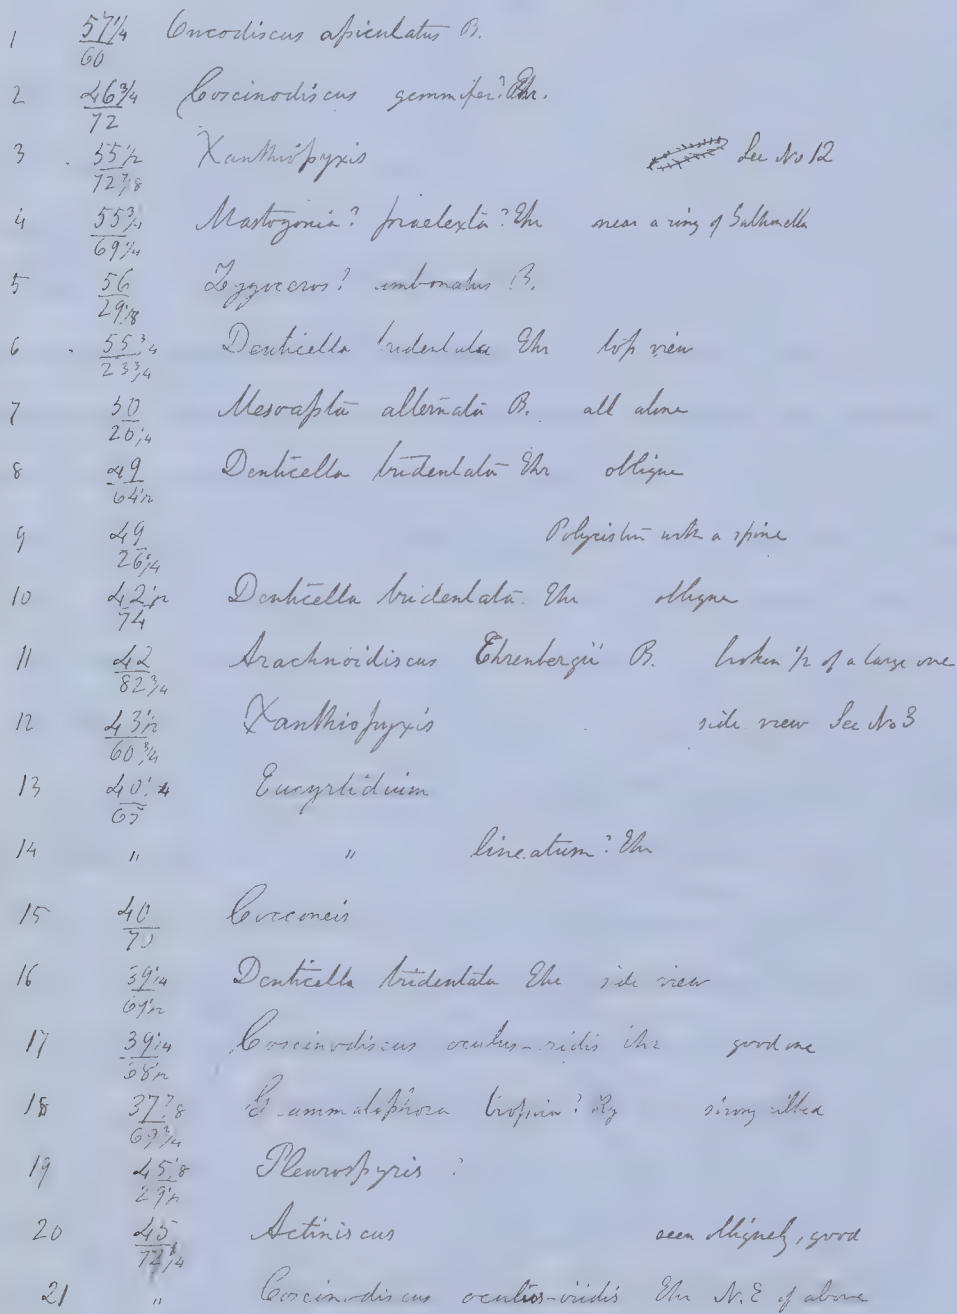 1 57 1/4 / 60 Oncodiscus apiculatus B.
2 46 3/4 / 72 Coscinodiscus gemmifer? Ehr.
3 55 1/2 / 72 7/8 Xanthiopyxis See No 12
4 55 3/4 / 69 1/4 Mastogonia? praetexta? Ehr near a ring of
5 56 / 29 1/8 Zygoceros? umbonatus B.
6 55 3/4 / 23 3/4 Denticella tridentata Ehr top view
7 50 / 20 1/4 alternata B. all alone
8 49 / 64 1/2 Denticella tridentata Ehr oblique
9 49 / 26 1/4 with a spine
10 42 1/2 / 74 Denticella tridentata Ehr oblique
11 42 / 82 3/4 Arachnoidiscus Ehrenbergii B. broken 1/2 of a large one
12 43 1/2 / 60 3/4 Xanthiopyxis side view See No 3
13 40 1/4 / 65 Eucyrtidium
14 " " lineatum? Ehr
15 40 / 70 Cocconeis
16 39 1/4 / 69 1/2 Denticella tridentata Ehr side view
17 39 1/4 / 68 1/2 Coscinodiscus oculus-iridis Ehr good one
18 37 7/8 / 69 3/4 Grammatophora strong ribbed
19 45 1/8 / 29 1/2 Pleurospyris ?
20 45 / 72 1/4 Actiniscus seen obliquely, good
21 " Coscinodiscus oculus-iridis Ehr N.E of above